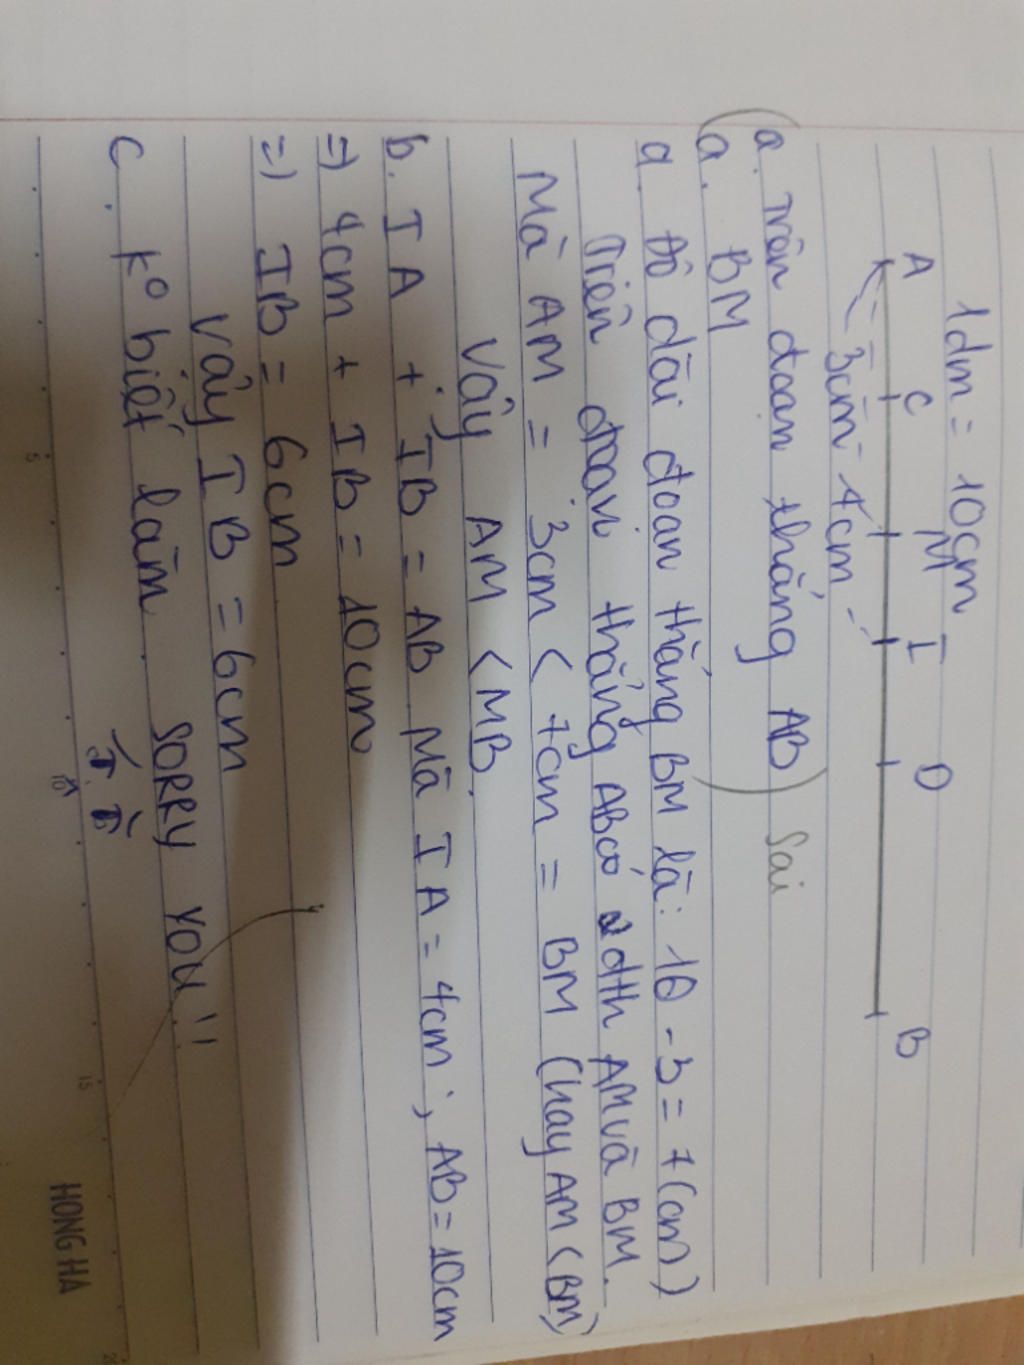 1dm = 10cm
A C M I O B
3cm 4cm
a. Trên đoạn thẳng AB) Sai
a. BM
a. Độ dài đoạn thẳng BM là: 10 - 3 = 7 (cm)
Trên đoạn thẳng AB có 2 đth AM và BM.
Mà AM = 3cm < 7cm = BM (hay AM < BM)
Vậy AM < MB.
b. IA + IB = AB Mà IA = 4cm; AB = 10cm
=) 4cm + IB = 10cm
=) IB = 6cm
Vậy IB = 6cm
C. K° biết làm. SORRY YOU!!
5 10 15 20
HONG HA